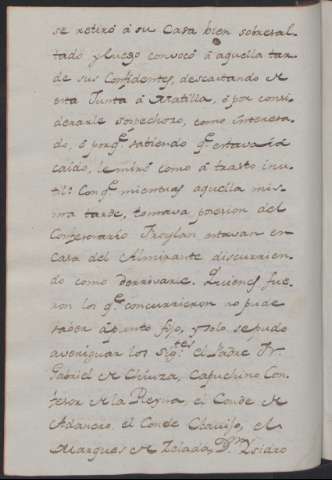 se retiró á su Casa bien sobresal-
tado, y luego convocó á aquella tar-
de sus Confidentes, descartando de
esta Junta á Matilla, ó por consi-
derarle sospechoso, como interesa-
do, ó porq.e sabiendo q.e estava ià
caido, le miró como á trasto inu-
til: Con q.e mientras aquella mis-
ma tarde, tomava posesion del
Confesonario Froylan estavan en
Casa del Almirante discurrien-
do como derrivarle. Quienes fue-
ron los q.e concurrieron no pude
saber á punto fijo, y solo se pudo
averiguar los sig.tes el Padre Fr.
Gabriel de Chiusa, Capuchino Con-
fesor de la Reyna, el Conde de
Adanero, el Conde
Marques de D.n Isidro